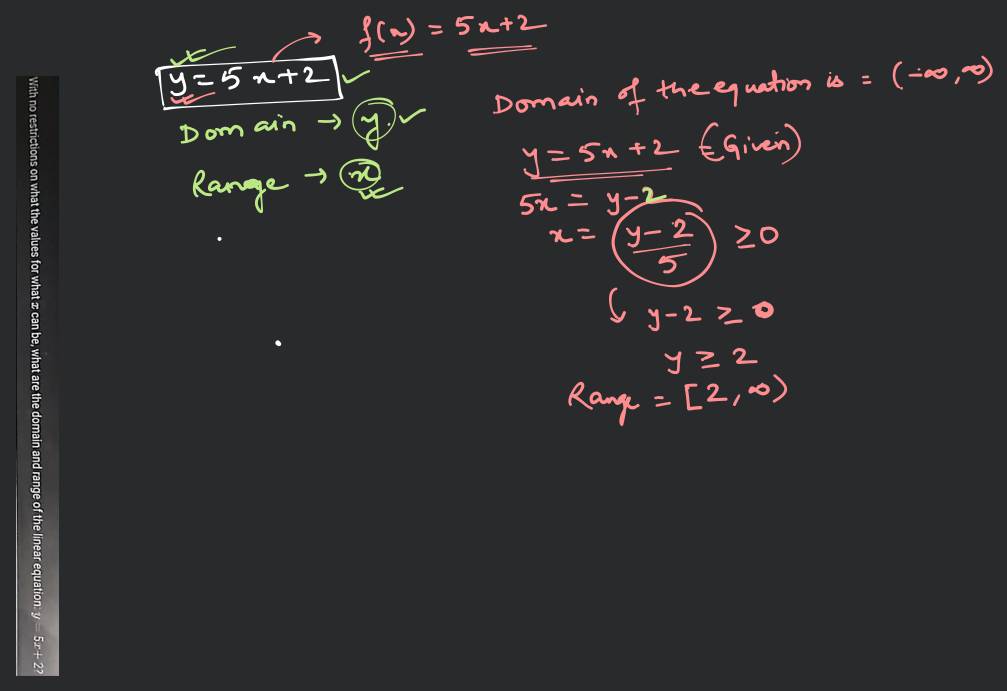 With no restrictions on what the values for what x can be, what are the domain and range of the linear equation: y = 5x + 2?
f(x) = 5x+2
y = 5x+2
Domain → y.
Range → x
Domain of the equation is = (-∞, ∞)
y = 5x+2 (Given)
5x = y-2
x = y-2/5 ≥0
y-2 ≥ 0
y ≥ 2
Range = [2, ∞)